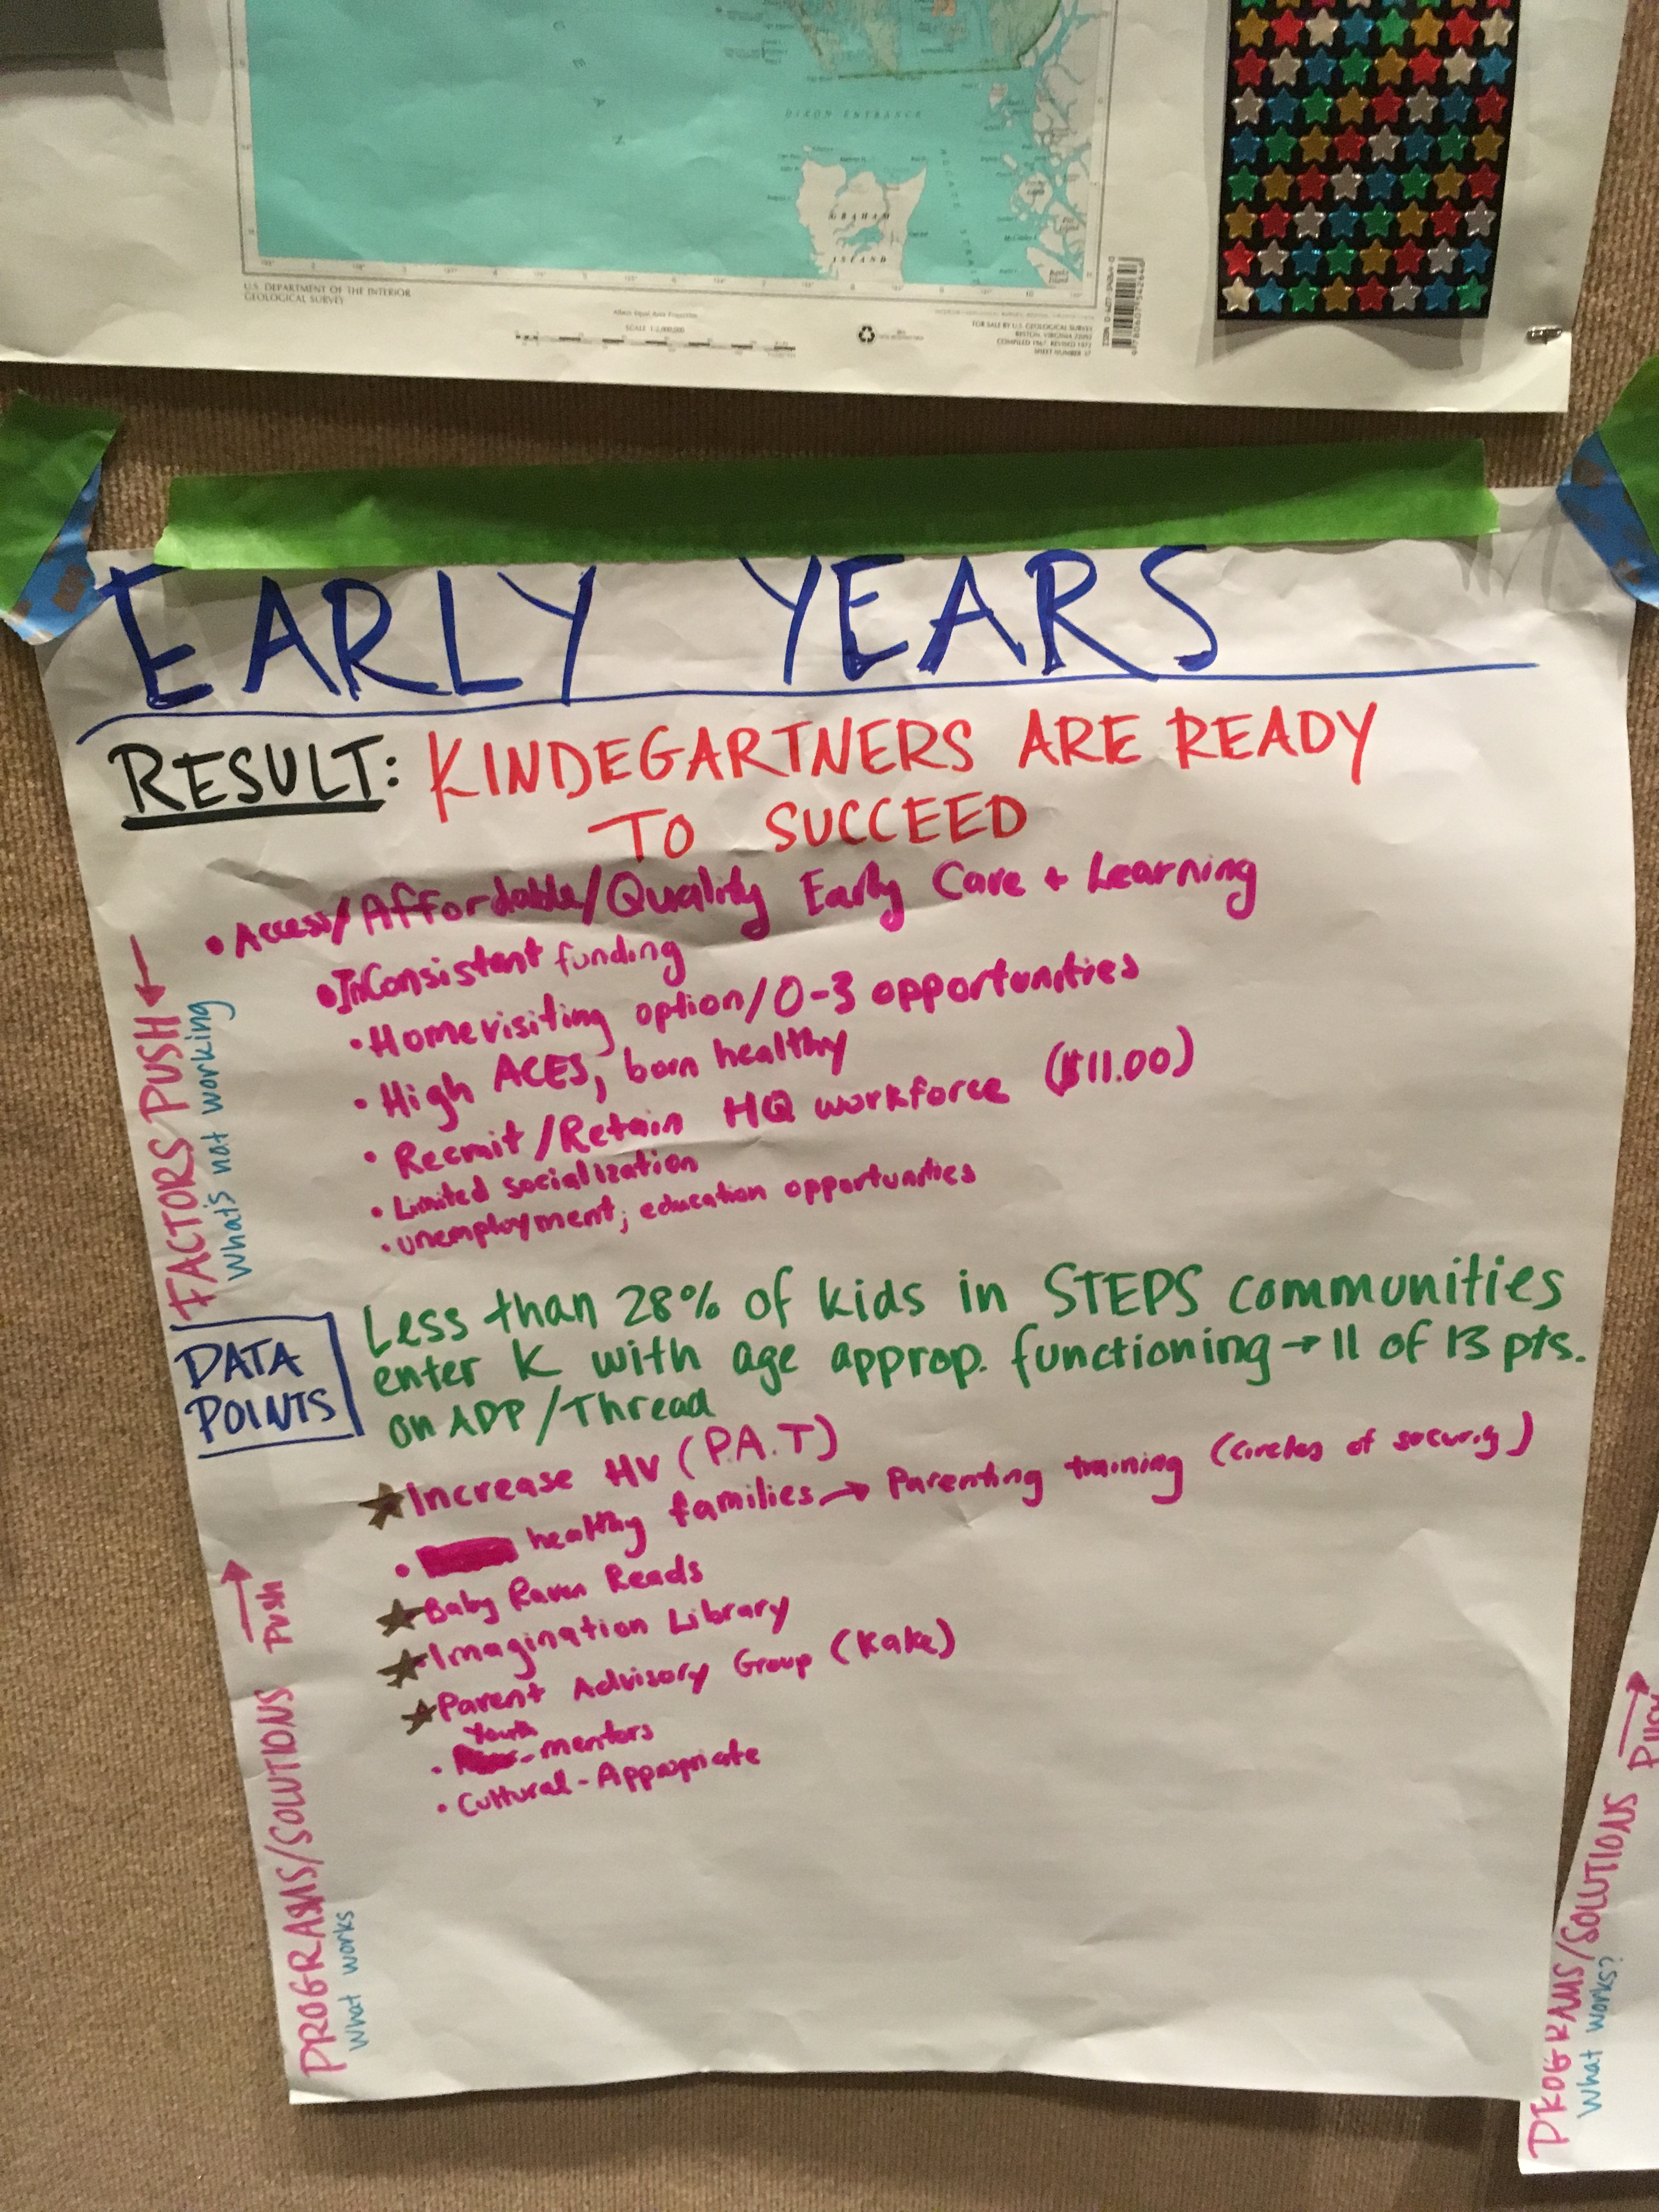 DIXON ENTRANCE
GRAHAM
ISLAND
U.S. DEPARTMENT OF THE INTERIOR
GEOLOGICAL SURVEY
SCALE 1:2,000,000
FOR SALE BY U.S. GEOLOGICAL SURVEY
RESTON, VIRGINIA 22092
COMPILED 1967 REVISED 1972
EARLY YEARS
RESULT: KINDEGARTNERS ARE READY
TO SUCCEED
FACTORS PUSH →
What's not working
• Access/Affordable/Quality Early Care + Learning
• InConsistent funding
• Homevisiting option/0-3 opportunities
• High ACES, born healthy
• Recruit/Retain HQ workforce ($11.00)
• Limited socialization
• unemployment; education opportunities
DATA
POINTS
Less than 28% of kids in STEPS communities
enter K with age approp. functioning → 11 of 13 pts.
on ADP/Thread
PROGRAMS/SOLUTIONS Push →
What works
★ Increase HV (P.A.T)
• healthy families → Parenting training (circles of security)
★ Baby Raven Reads
★ Imagination Library
★ Parent Advisory Group (Kake)
• Youth -mentors
• Cultural-Appropriate
PROGRAMS/SOLUTIONS
What works?